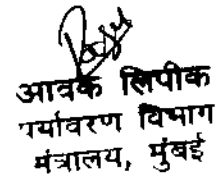 आवक लिपीक
पर्यावरण विभाग
मंत्रालय, मुंबई